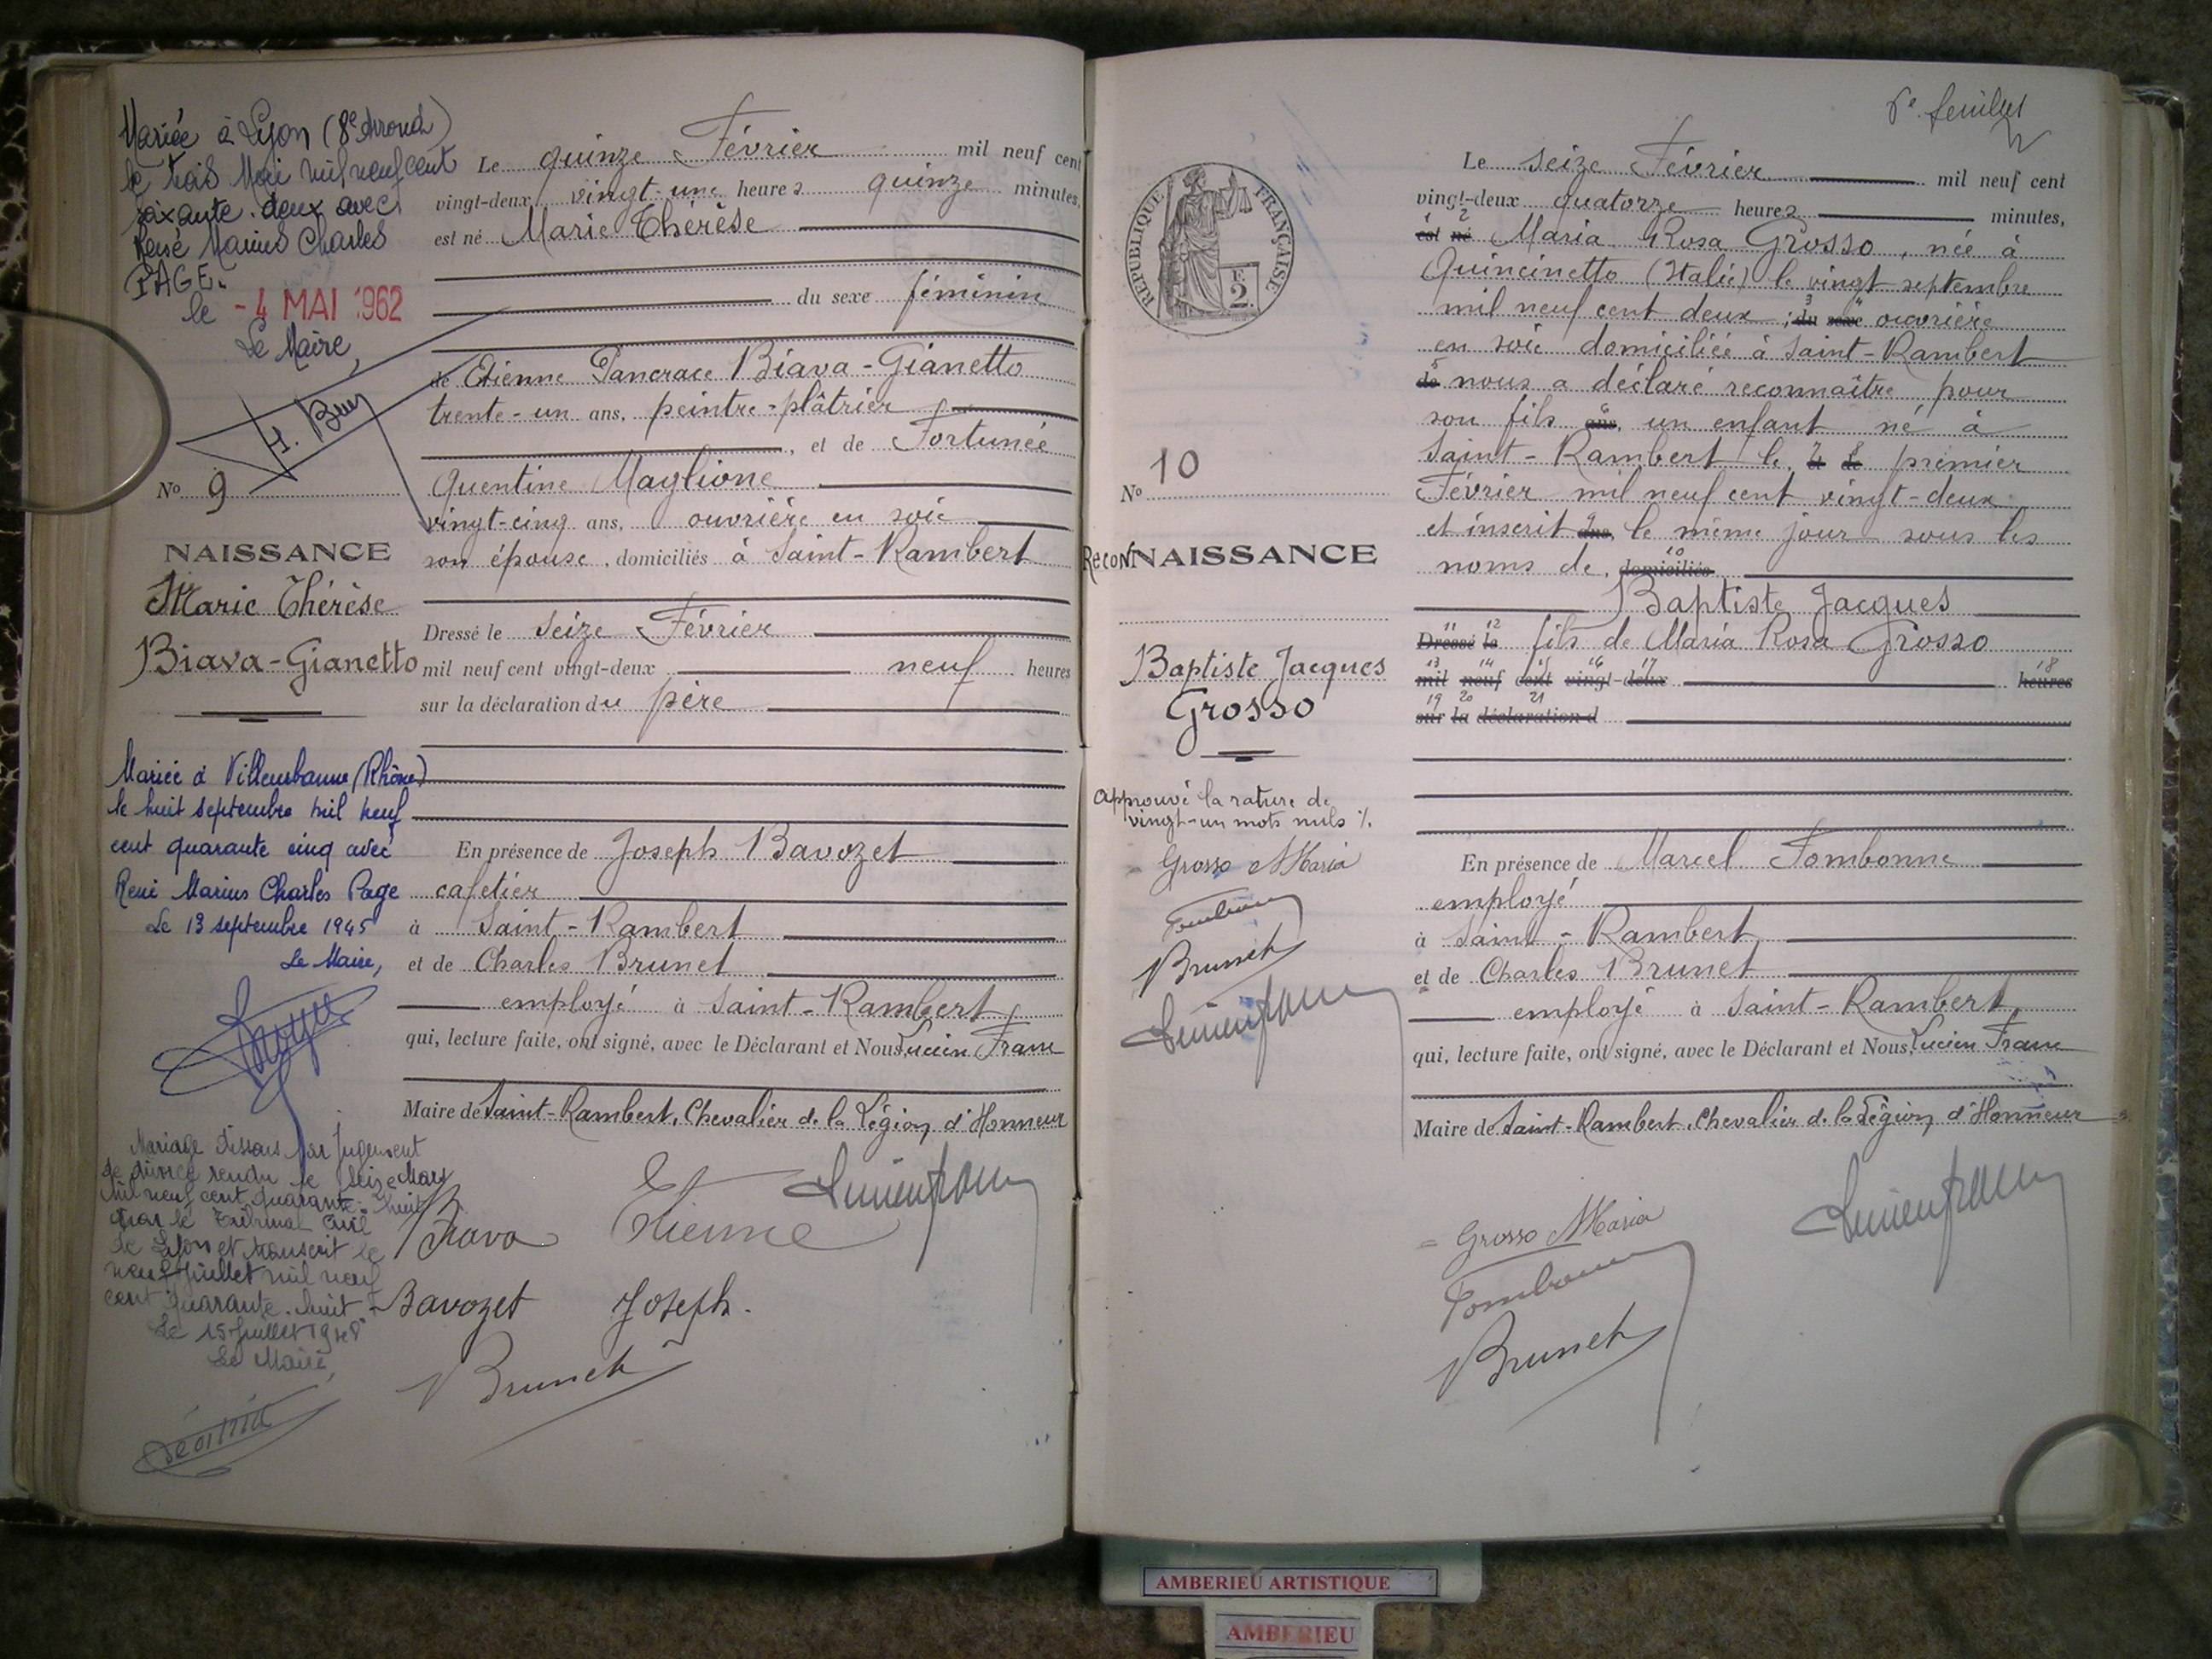 Mariée à Lyon (8e Arrond)
le trois Mai mil neuf cent
soixante-deux avec
René Marius Charles
PAGE.
le - 4 MAI 1962
Le Maire,
No 9
NAISSANCE
Marie Thérèse
Biava-Gianetto
Mariée à Villeurbanne (Rhône)
le huit septembre mil neuf
cent quarante cinq avec
René Marius Charles Page
Le 13 septembre 1945
Le Maire,
Mariage dissous par jugement
de divorce rendu le seize Mars
mil neuf cent quarante-huit
par le Tribunal Civil
de Lyon et transcrit le
neuf Juillet mil neuf
cent quarante-huit
Le 15 Juillet 1948
Le Maire,
Le quinze Février mil neuf cent
vingt-deux vingt-une heures quinze minutes,
est né Marie Thérèse
du sexe féminin
de Etienne Pancrace Biava-Gianetto
trente-un ans, peintre-plâtrier
, et de Fortunée
Quentine Maglione
vingt-cinq ans, ouvrière en soie
son épouse, domiciliés à Saint-Rambert
Dressé le seize Février
mil neuf cent vingt-deux neuf heures
sur la déclaration du père
En présence de Joseph Bavozet
cafetier
à Saint-Rambert
et de Charles Brunet
employé à Saint-Rambert
qui, lecture faite, ont signé, avec le Déclarant et Nous Lucien Franc
Maire de Saint-Rambert, Chevalier de la Légion d'Honneur
Biava Etienne
Bavozet Joseph.
Brunet
6e feuillet
RÉPUBLIQUE FRANÇAISE
2 F.
No 10
ReconNAISSANCE
Baptiste Jacques
Grosso
Approuvé la rature de
vingt-un mots nuls %.
Grosso Maria
Brunet
Le seize Février mil neuf cent
vingt-deux quatorze heures minutes,
2
est né Maria Rosa Grosso, née à
Quincinetto (Italie) le vingt septembre
3 4
mil neuf cent deux ; du sexe ouvrière
en soie domiciliée à Saint-Rambert
5
de nous a déclaré reconnaître pour
6
son fils ans, un enfant né à
Saint-Rambert le premier
Février mil neuf cent vingt-deux
9
et inscrit ans, le même jour sous les
10
noms de domiciliés
Baptiste Jacques
11 12
Dressé le fils de Maria Rosa Grosso
13 14 15 16 17 18
mil neuf cent vingt-deux heures
19 20 21
sur la déclaration d
En présence de Marcel Fombonne
employé
à Saint-Rambert
et de Charles Brunet
employé à Saint-Rambert
qui, lecture faite, ont signé, avec le Déclarant et Nous, Lucien Franc
Maire de Saint-Rambert, Chevalier de la Légion d'Honneur
Grosso Maria
Fombonne
Brunet
AMBERIEU ARTISTIQUE
AMBERIEU